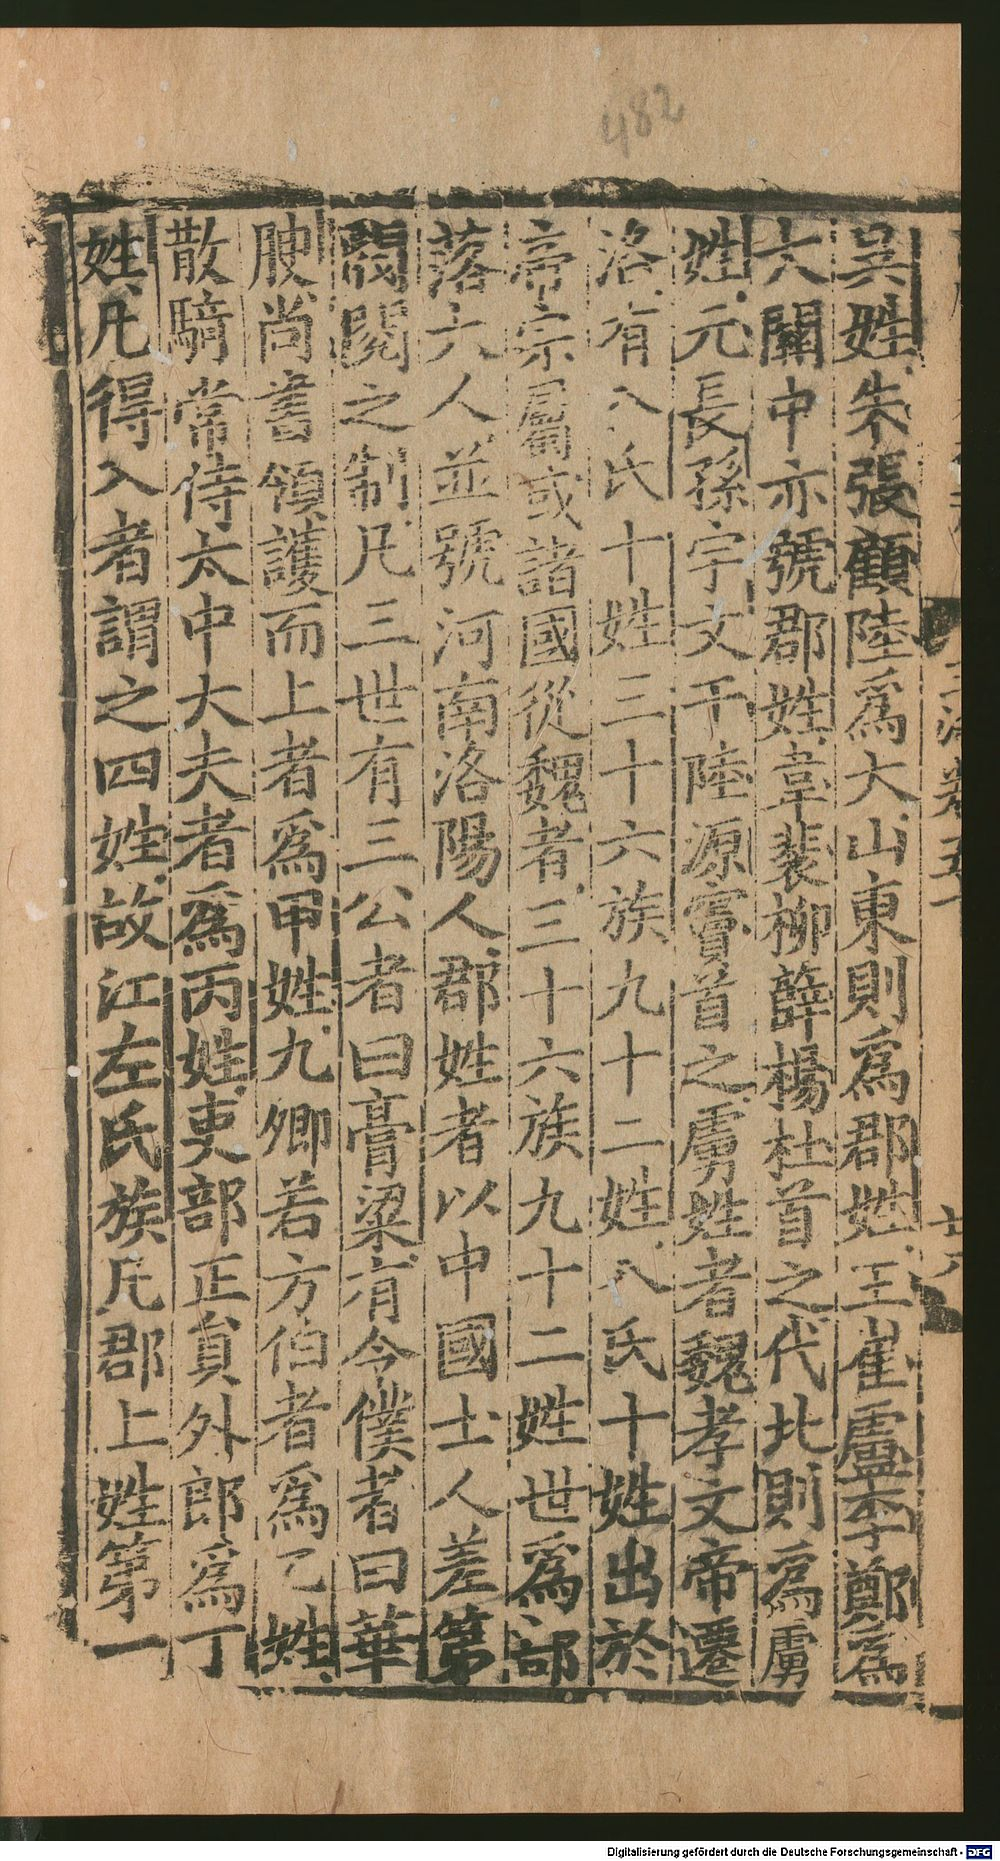 482
吳姓朱張顧陸爲大山東則爲郡姓王崔盧李鄭爲
大關中亦號郡姓韋裴柳薛楊杜首之代北則爲虜
姓元長孫宇文于陸源竇首之虜姓者魏孝文帝遷
洛有八氏十姓三十六族九十二姓八氏十姓出於
帝宗屬或諸國從魏者三十六族九十二姓世爲部
落大人並號河南洛陽人郡姓者以中國士人差第
閥閱之制凡三世有三公者曰膏粱有令僕者曰華
腴尚書領護而上者爲甲姓九卿若方伯者爲乙姓
散騎常侍太中大夫者爲丙姓吏部正員外郎爲丁
姓凡得入者謂之四姓故江左氏族凡郡上姓第一
Digitalisierung gefördert durch die Deutsche Forschungsgemeinschaft - DFG